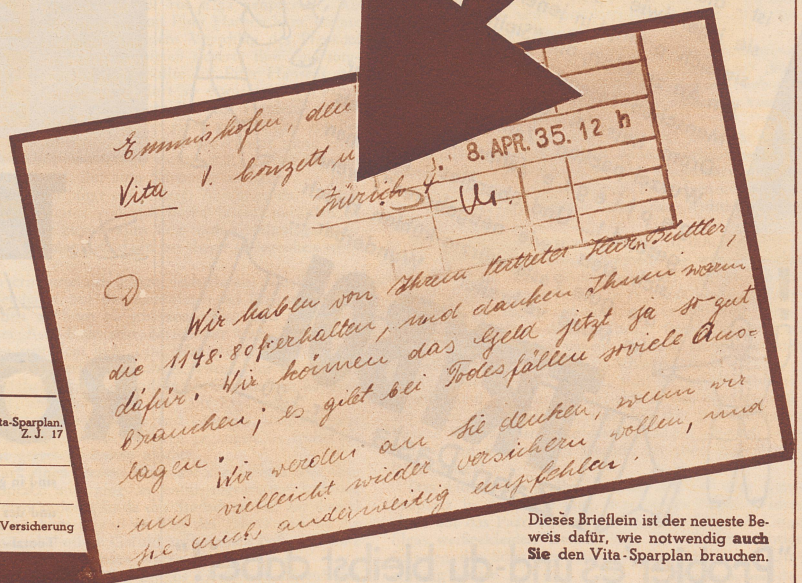 Emmishofen, den
Vita V. Conzett u
Zürich 4.
8. APR. 35. 12 h
D
Wir haben von Ihrem Vertreter Herrn Büttler,
die 1148.80 fr erhalten, und danken Ihnen warm
dafür. Wir können das Geld jetzt ja so gut
brauchen; es gibt bei Todesfällen soviele Aus=
lagen.
Wir werden an Sie denken, wenn wir
uns vielleicht wieder versichern wollen, und
Sie auch anderweitig empfehlen.
ta-Sparplan.
Z. J. 17
Versicherung
Dieses Brieflein ist der neueste Be-
weis dafür, wie notwendig auch
Sie den Vita-Sparplan brauchen.